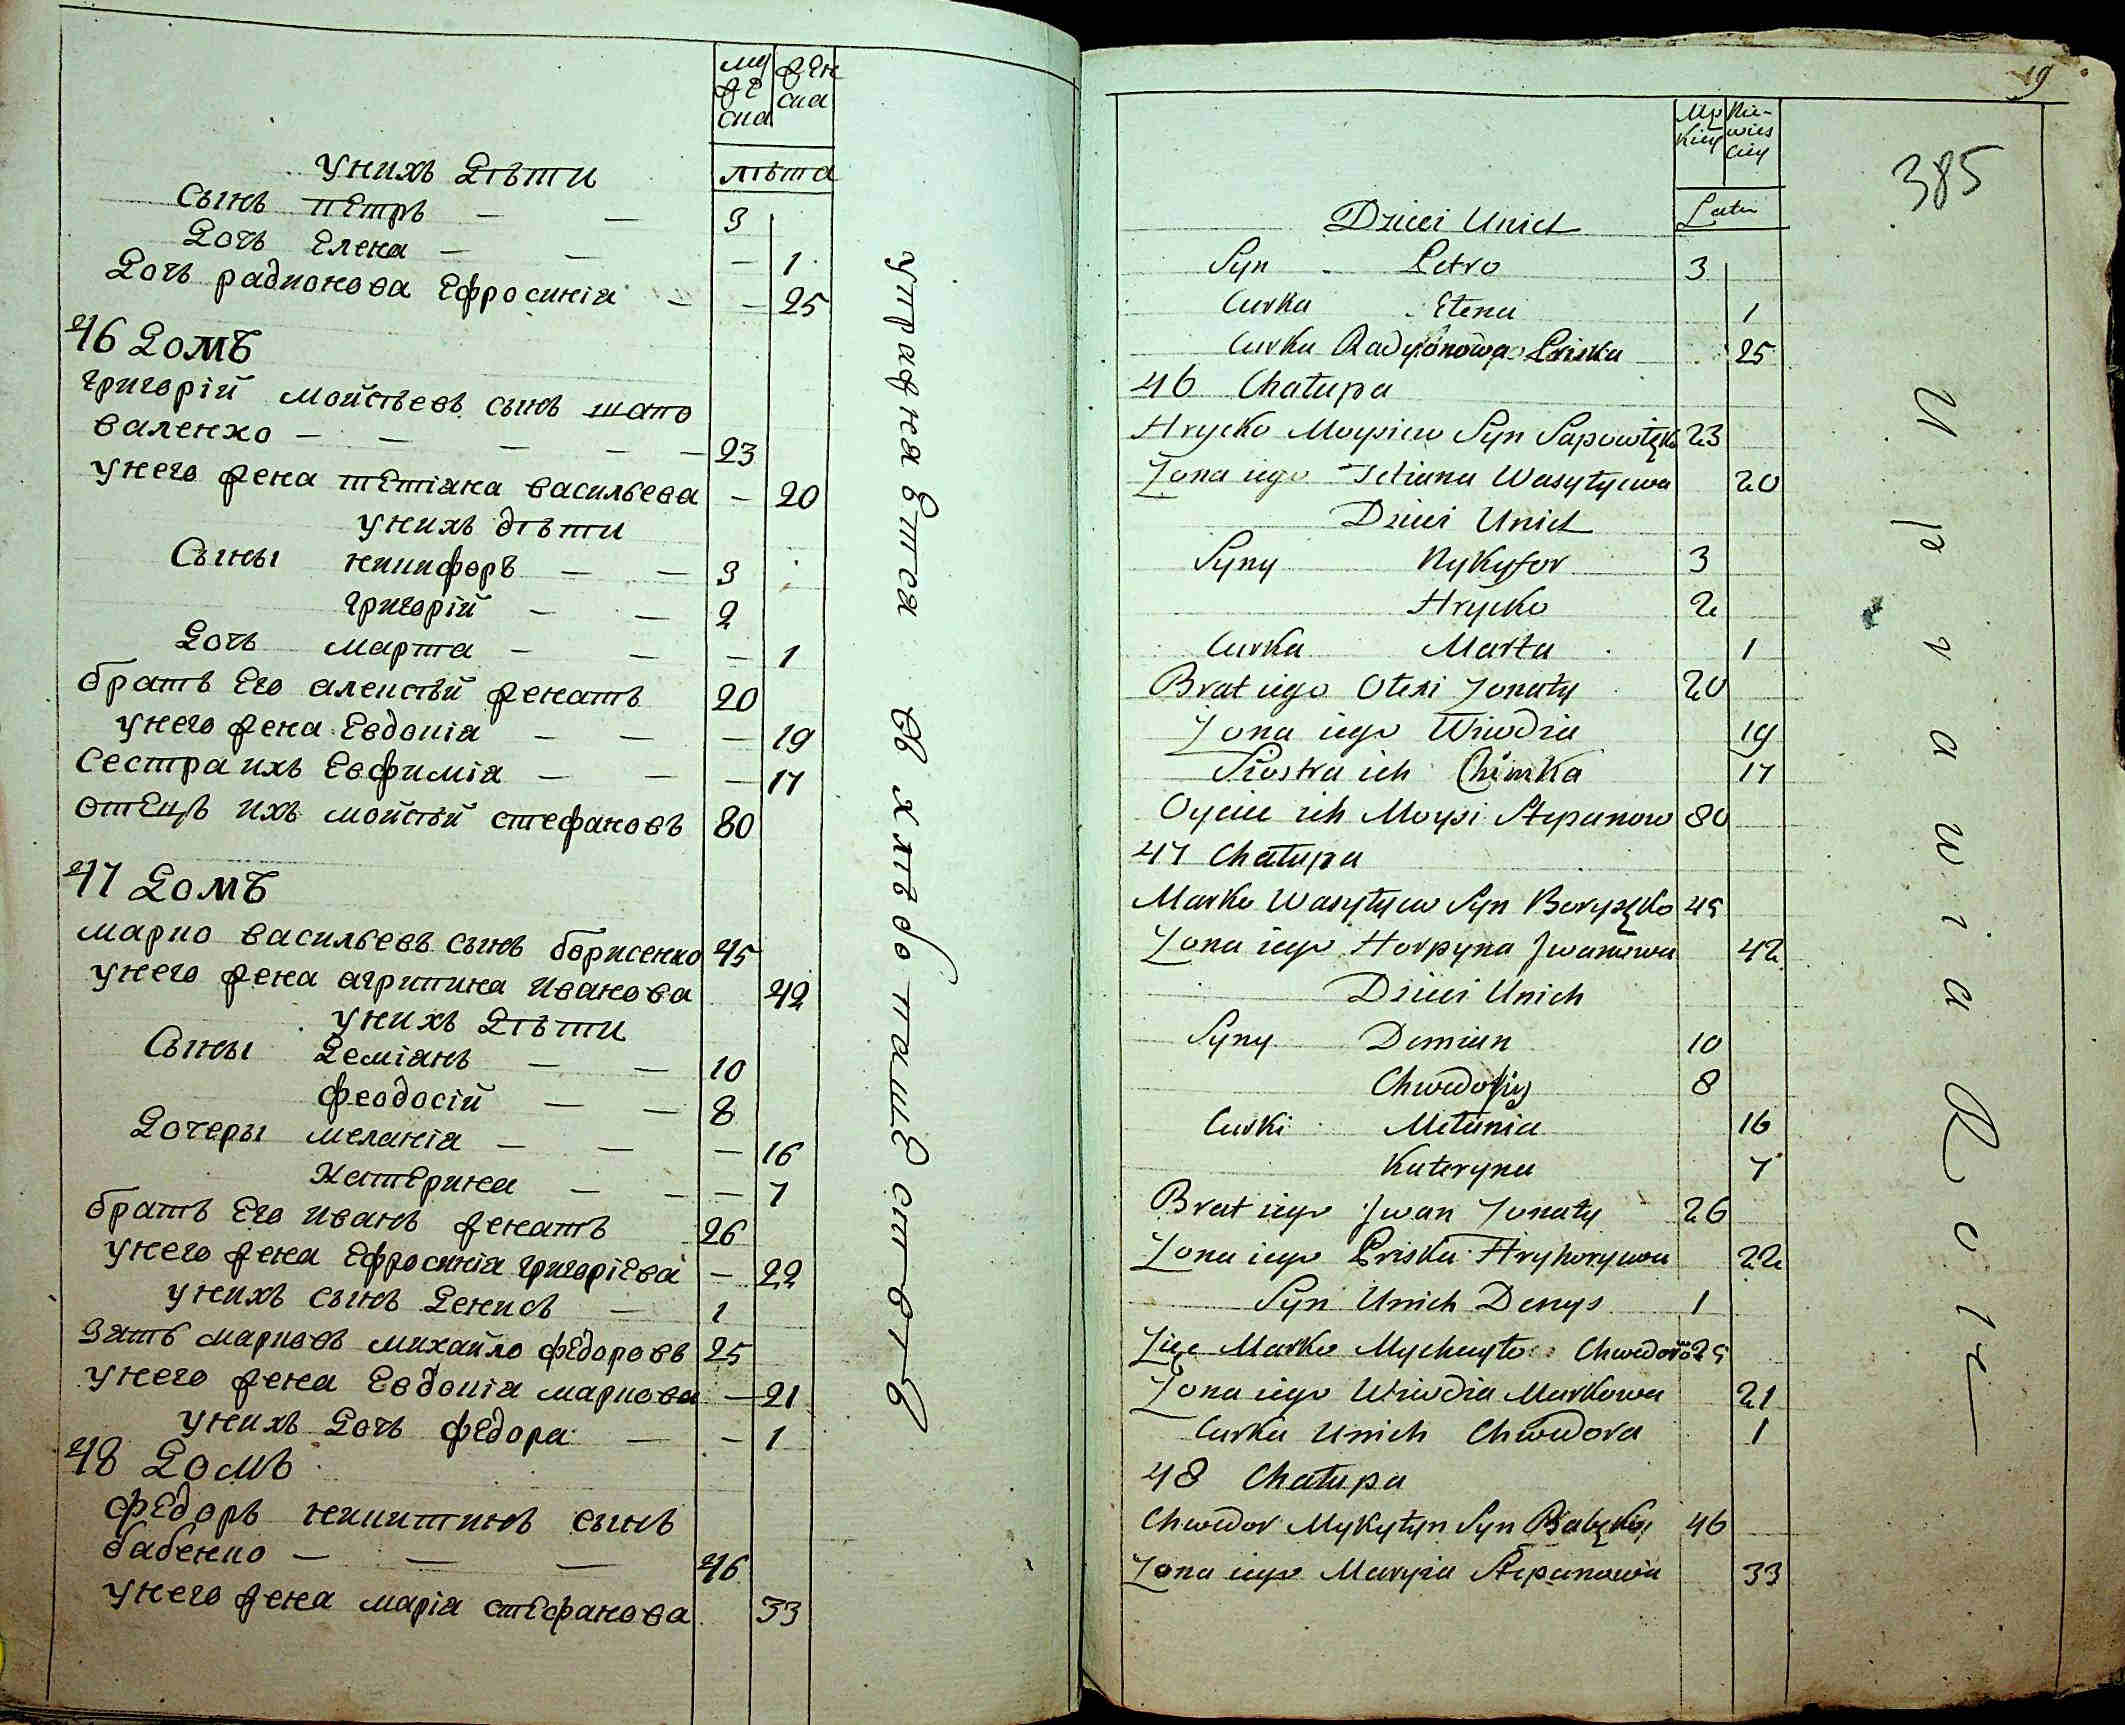 муже
ска
жен
ска
лѣта
у нихъ дѣти
Сынъ петръ — — 3
Дочь Елена — — — 1
Дочь радионова Ефросинія — — 25
46 Домъ
григорій мойсѣевъ сынъ шапо
валенко — — — — — 23
у него жена тетіана васильева — 20
у нихъ дѣти
Сыны никифоръ — — 3
григорій — — 2
Дочь марта — — — 1
братъ Его алексѣй женатъ 20
у него жена Евдокія — — — 19
Сестра ихъ Евфимія — — — 17
отецъ ихъ мойсѣй стефановъ 80
47 Домъ
марко васильевъ сынъ борисенко 45
у него жена агрипина иванова 42
у нихъ Дѣти
Сыны Деміанъ — — 10
феодосій — — 8
Дочеры меланія — — — 16
Катерина — — — 7
братъ Его иванъ женатъ 26
у него жена Ефросинія григоріева — 22
у нихъ сынъ Денисъ — 1
Зять марковъ михайло федоровъ 25
у него жена Евдокія маркова — 21
у нихъ Дочь федора — — 1
48 Домъ
федоръ никитинъ сынъ
бабенко — — — 46
у него жена марія стефанова 33
упражняется въ хлѣбопашествѣ
19
385
Męz
kiey
Nie-
wies
ciey
Lata
Dzieci Unich
Syn Petro 3
Curka Ełena 1
Curka Radyonowa Priska 25
46 Chałupa
Hrycko Moysiew Syn Szapowałęko 23
Zona iego Tetiana Wasyłyewa 20
Dzieci Unich
Syny Nykyfor 3
Hrycko 2
Curka Marta 1
Brat iego Ołexi Zonaty 20
Zona iego Wiwdia 19
Siostra ich Chimka 17
Oyciec ich Moysi Stepanow 80
47 Chałupa
Marko Wasyłyew Syn Borysęko 45
Zona iego Horpyna Jwanowa 42
Dzieci Unich
Syny Demian 10
Chwedosiy 8
Curki Mełania 16
Kateryna 7
Brat iego Jwan Zonaty 26
Zona iego Priska Hryhorywa 22
Syn Unich Denys 1
Zięc Marka Mychayło Chwedorow 25
Zona iego Wiwdia Markowa 21
Curka Unich Chwedora 1
48 Chałupa
Chwedor Mykytyn Syn Babęko 46
Zona iego Maryia Stepanowa 33
Uprawia Rolę